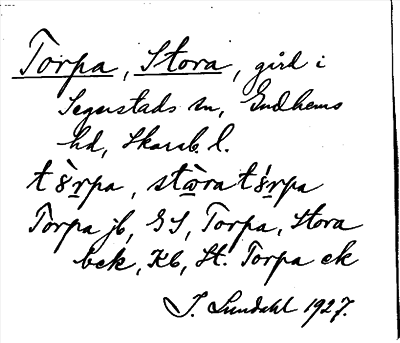 Torpa, Stora, gård i
Segerstads sn, Gudhems
hd, Skarab. l.
tȣ̀rpa, stòra tȣ́rpa
Torpa jb, GS, Torpa, Stora
bek, Kb, St. Torpa ek
I. Lundahl 1927.